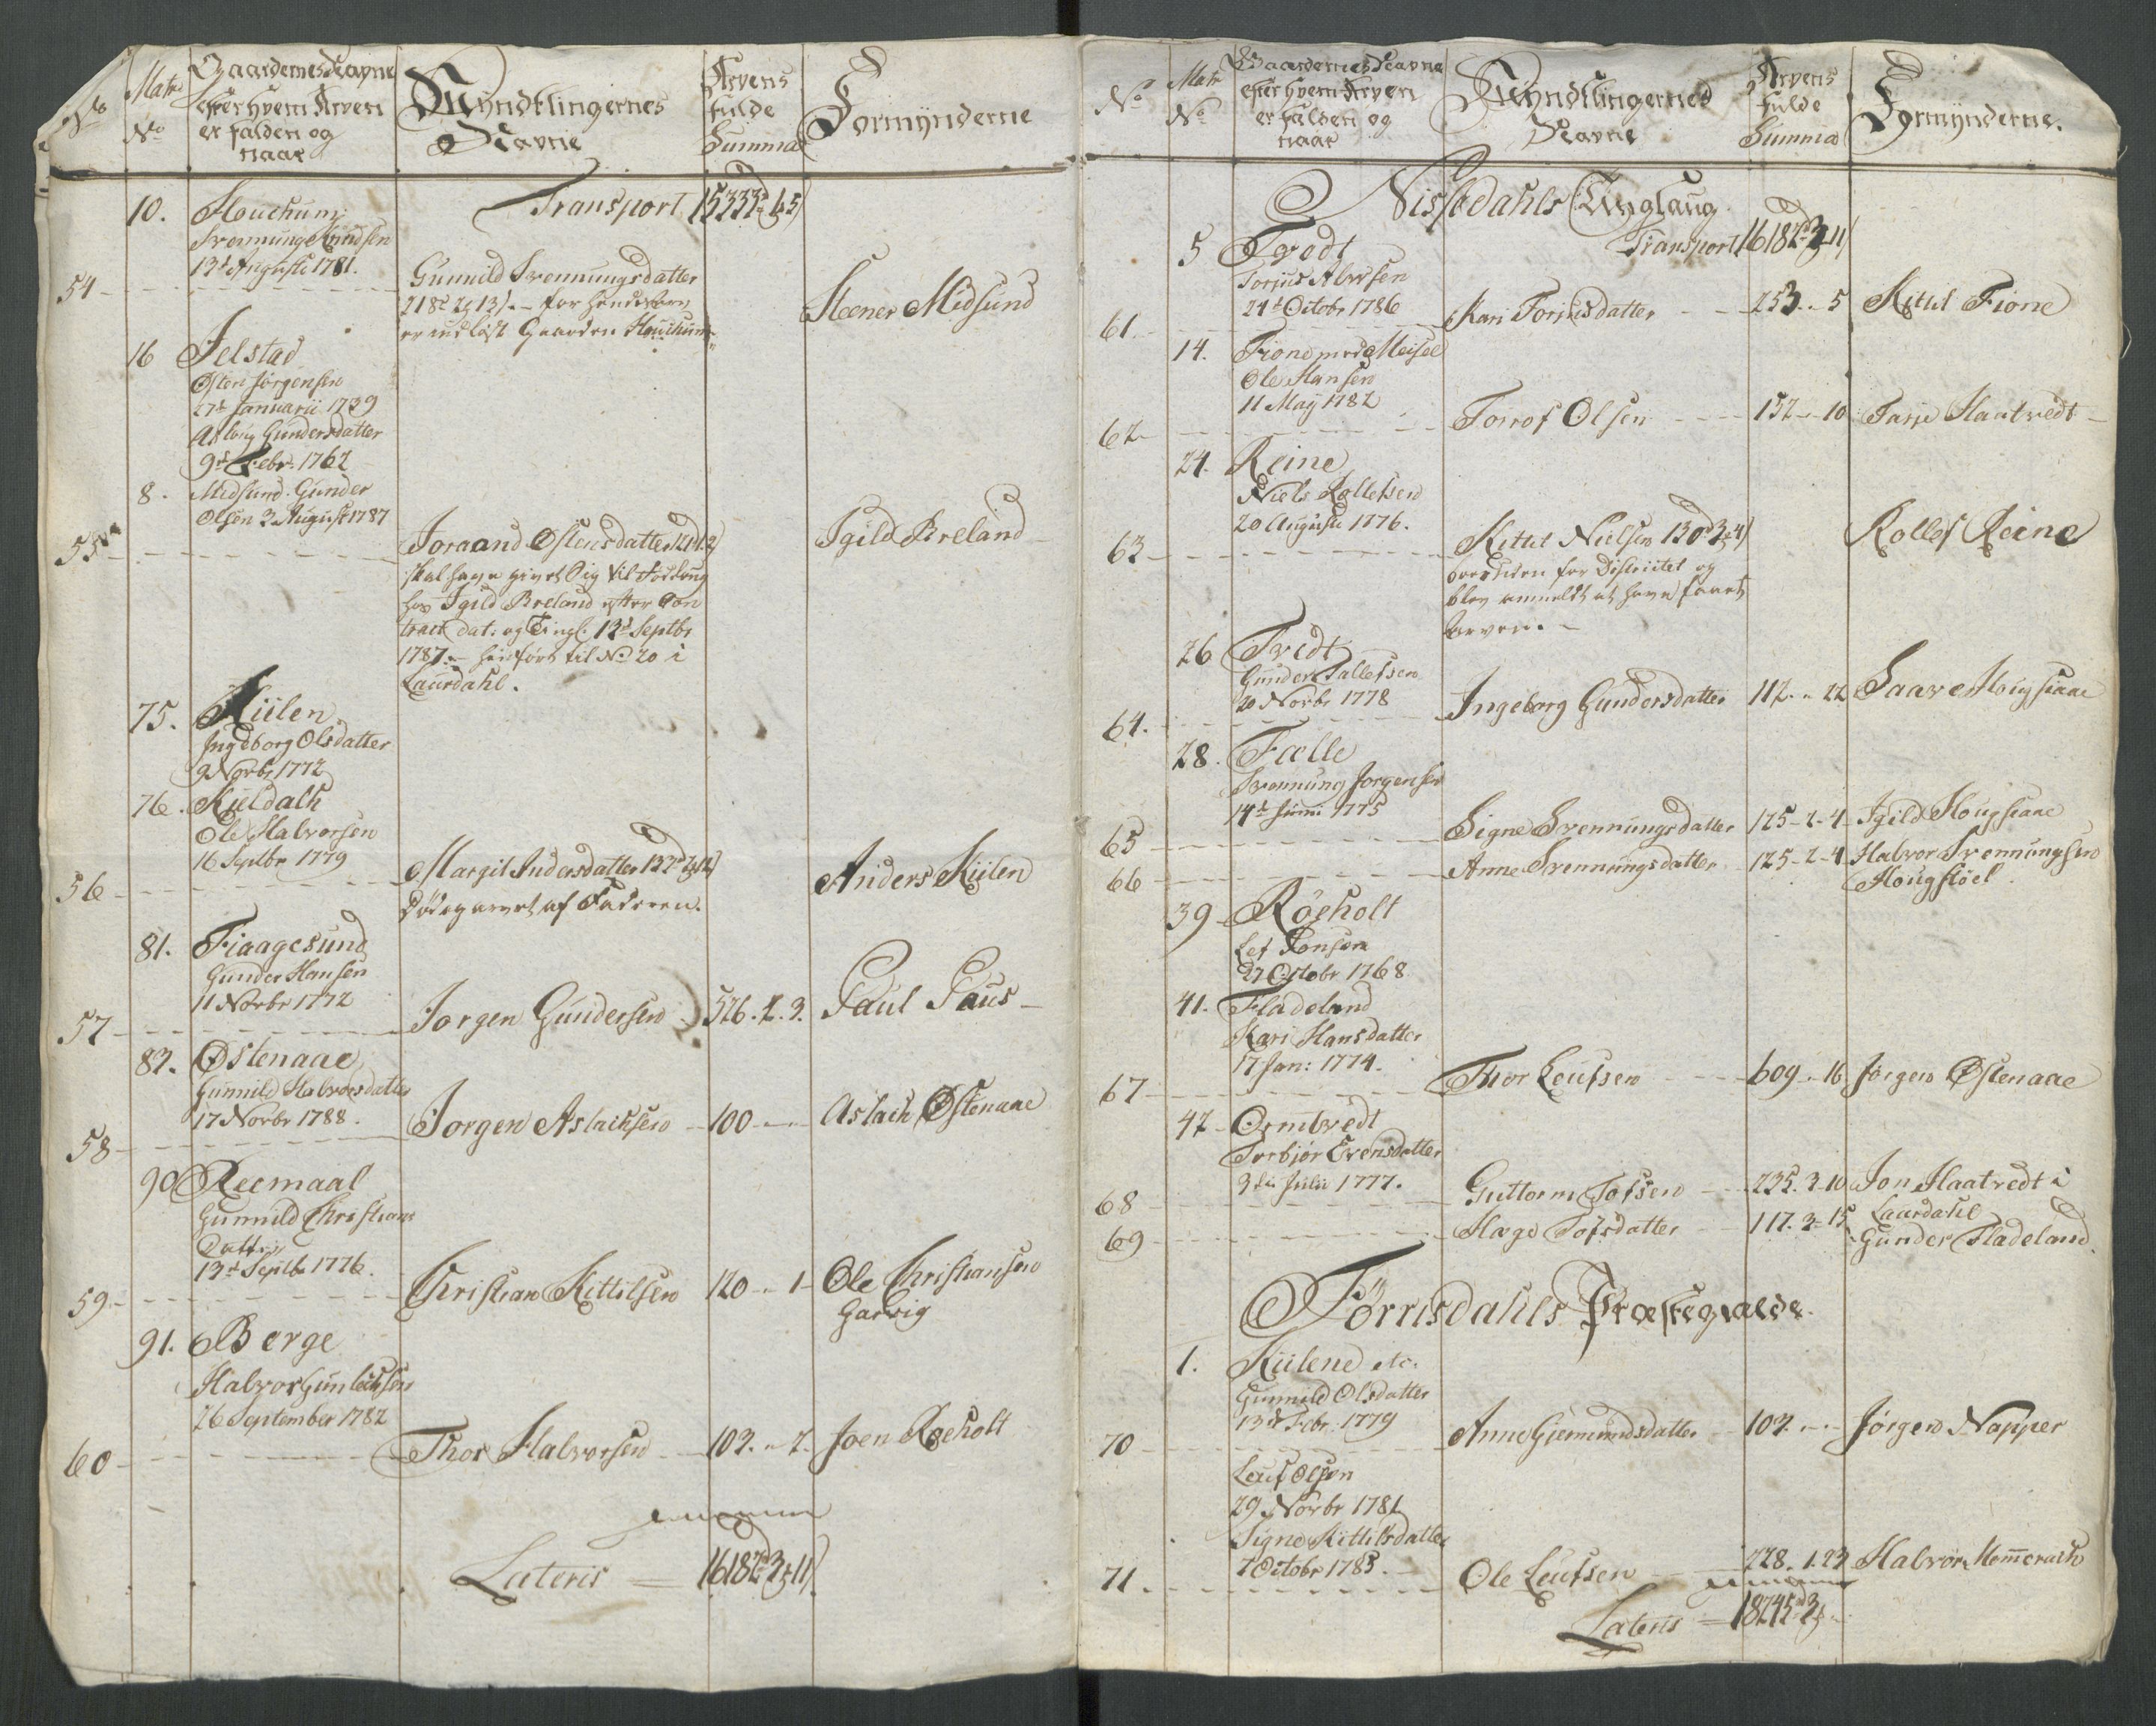 No
Matr No
Gaardernes Navne
efter hvem Arven
er falden og
naar
Myndtlingernes
Navne
Arvens
fulde
Summa
Formynderne
10.
Houchum
Svennung Knudsen
13de Augusti 1781.
Transport 15333 - 1 - 5
54
Gunnild Svennungsdatter
218 - 2 - 13 - for hendes Arv
er udlagt Gaarden Houchum
Steener Midsund
16
Jelstad
Østen Jørgensen
27de Januarii 1739
Asloug Gundersdatter
9de Febr. 1762
8.
Midsund Gunder
Olsen 2 August 1787
55
Joraand Østensdatter
skal have givet sig til Føderaug
hos Igild Breland efter Con
tract dat: og Tingl: 12de Septbr
1787. - henført til No 20 i
Laurdahl.
Igild Breland
75.
Kiilen
Ingeborg Olsdatter
9 Novbr 1772
76.
Kiildalh
Ole Halvorsen
16 Septbr 1779
56
Margit Andersdatter 132 - 2 - 12
Død og arvet af Faderen.
Anders Kiilen
81.
Fiaagesund
Gunder Hansen
11 Novbr 1772
57
Jorgen Gundersen
526. 2. 3.
Paul Paus
82.
Østenaae
Gunnild Halvorsdatter
17 Novbr 1788.
58
Jorgen Aslachsen
100
Aslach Østenaae
90
Reemaal
Gunnild Christians
Datter
13de Septbr 1776.
59
Christian Kittilsen
120 - 1
Ole Christiansen
Garvig
91.
Berge
Halvor Gunleichsen
26 September 1782
60
Thor Halvorsen
102. - 2.
Joen Røeholt
Lateris = 16182 - 3 - 11
No
Matr No
Gaardernes Navne
efter hvem Arven
er falden og
naar
Myndtlingernes
Navne
Arvens
fulde
Summa
Formynderne.
Nissedahls Anglaug
5
Tvedt
Torjus Alvsen
24de Octobr 1786
Transport 16182 - 3 - 11
61
Kari Torjusdatter
253. - 5
Kittil Fione
14.
Fione med Meisel
Ole Hansen
11 May 1782
62
Torrof Olsen
152 - 10
Tarje Haatvedt
24.
Reine
Niels Rollefsen
20 Augusti 1776.
63
Kittil Nielsen 130 - 3 - 4
borttiden for Districtet og
blev anmeldt at have faaet
Arven.
Rollef Reine
26
Tvedt
Gunder Tallefsen
20 Novbr 1778
64.
Ingeborg Gundersdatter
112. - 22
Saave Hougsiaae
28.
Fælle
Svennung Jorgensen
14de Junii 1775
65
Signe Svennungsdatter
125 - 2 - 4
Igild Hougsiaae
66
Anne Svennungsdatter
125 - 2 - 4
Halvor Svennungsen
Hougstøel
39
Røeholt
Lef Tonsen
27 Octobr 1768
41.
Fladeland
Kari Hansdatter
17 Jan: 1774.
67
Thor Leufsen
609 - 16
Jørgen Østenaae
47
Ormtvedt
Torbjør Evensdatter
3die Julii 1777.
68
Guttorm Tofsen
235. 3. 10
Jon Haatvedt i
Laurdahl
69
Hæge Tofsdatter
117. 3 - 15
Gunder Fladeland
Førrisdahls Præstegield
1.
Kiilene etc.
Gunnild Olsdatter
13de Febr. 1779
70
Anne Giermundsdatter
102.
Jørgen Napper
Leuf Olsen
29 Novbr 1781
Signe Kittilsdatter
7 Octobr 1783.
71.
Ole Leufsen
228. 1. 23
Halvor Momrach
Lateris = 18245 - 3